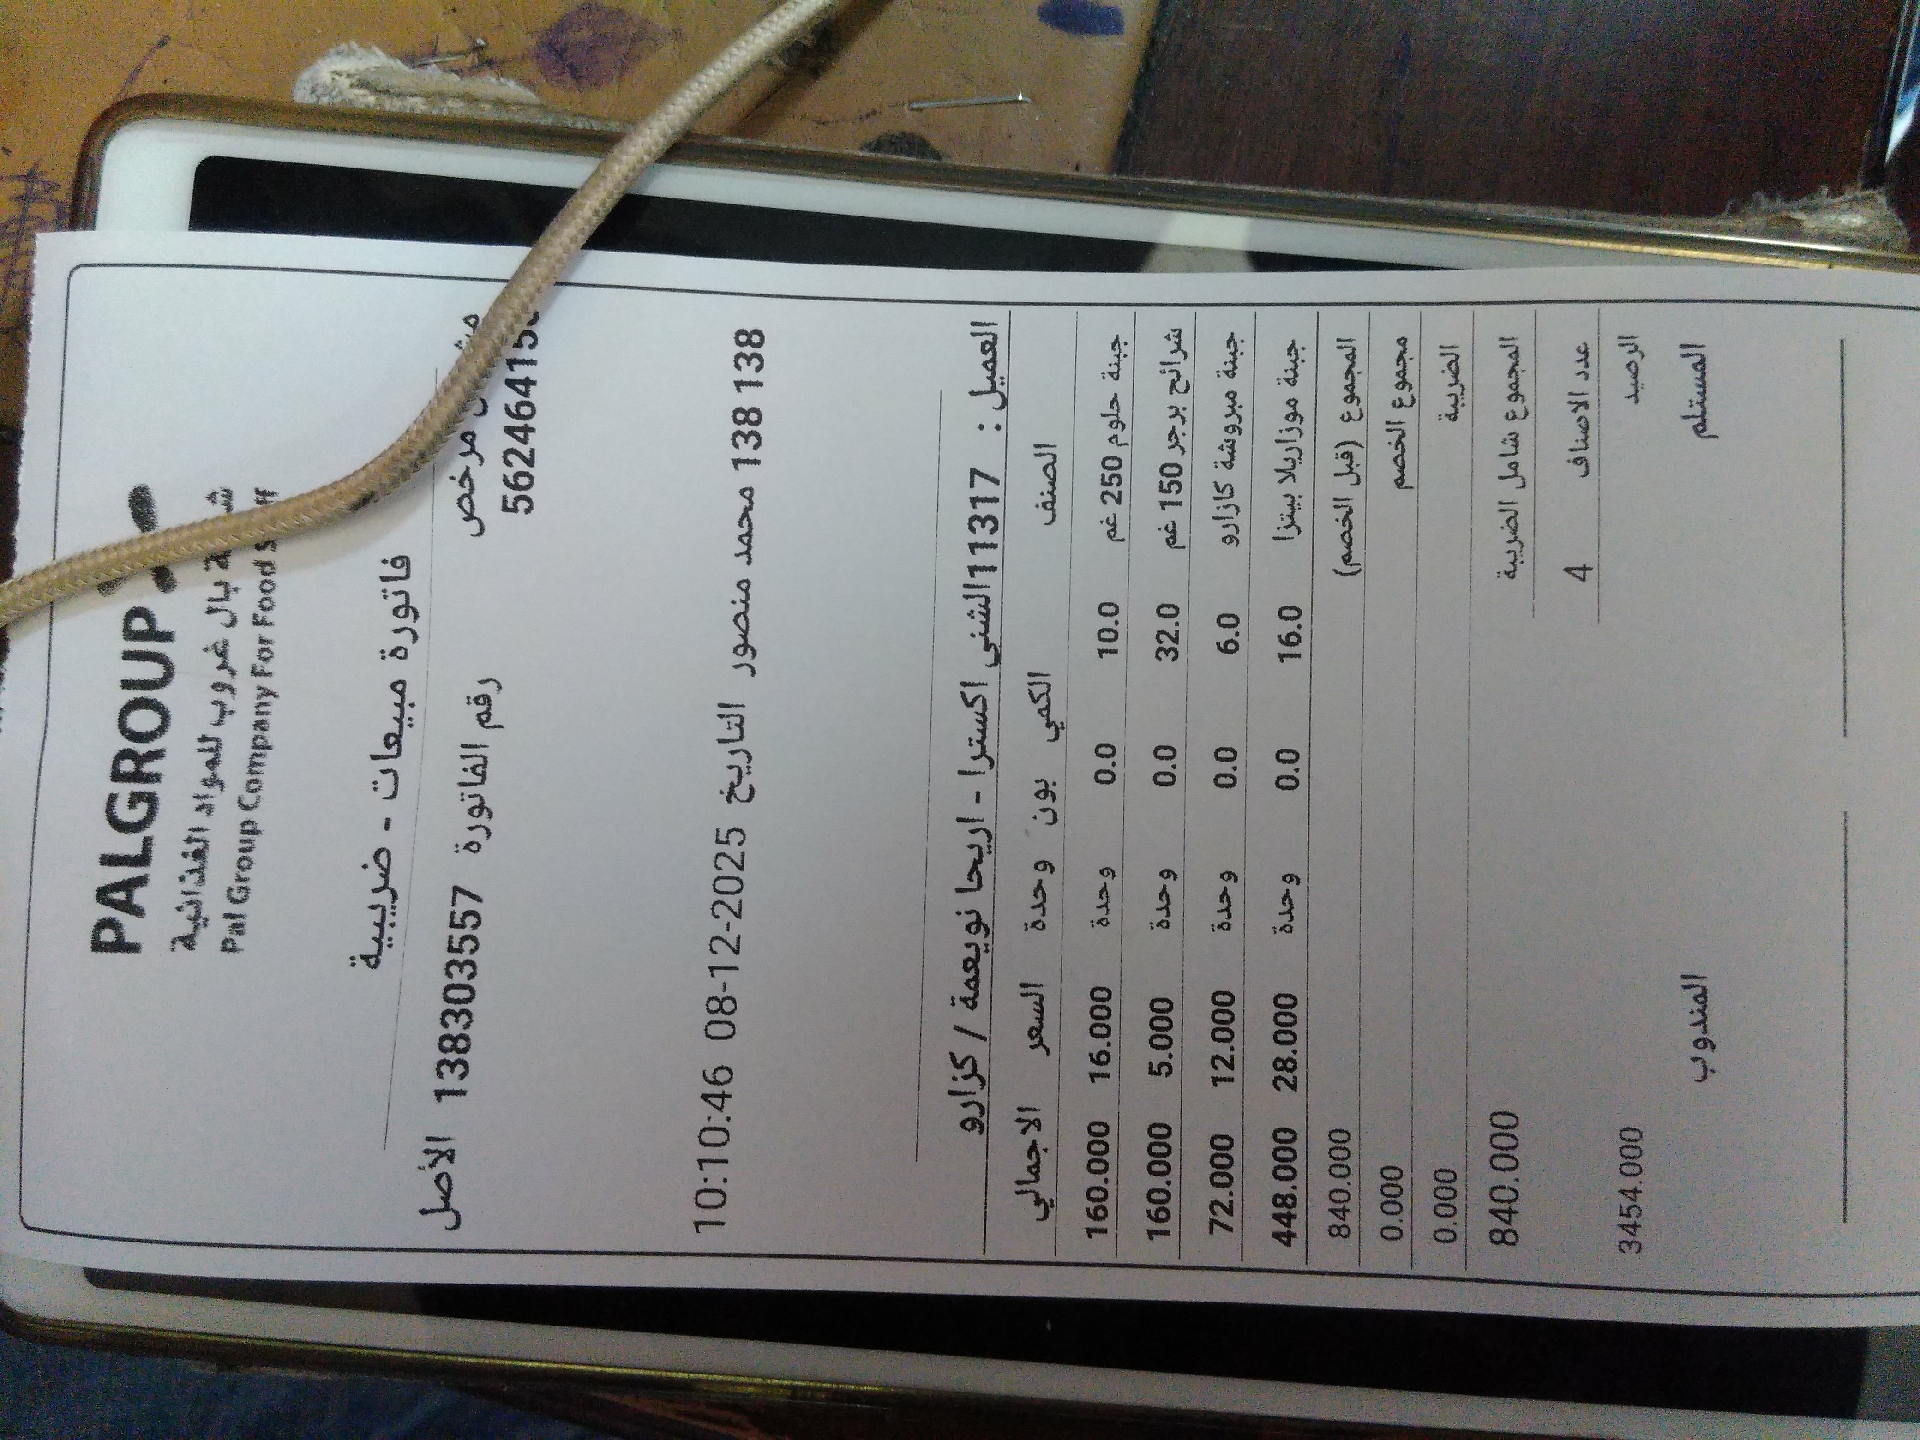 PALGROUP
بال غروب للمواد الغذائية
Pal Group Company For Food
فاتورة مبيعات - ضريبية
مرخص رقم الفاتورة 138303557 الأصل
56246415
138 138 محمد منصور التاريخ 08-12-2025 10:10:46
العميل : 11317الشني اكسترا - اريحا نويعمة / كزارو
الصنف الكمي بون وحدة السعر الاجمالي
جبنة حلوم 250 غم 10.0 0.0 وحدة 16.000 160.000
شرائح برجر 150 غم 32.0 0.0 وحدة 5.000 160.000
جبنة مبروشة كازارو 6.0 0.0 وحدة 12.000 72.000
جبنة موزاريلا بيتزا 16.0 0.0 وحدة 28.000 448.000
المجموع (قبل الخصم) 840.000
مجموع الخصم 0.000
الضريبة 0.000
المجموع شامل الضريبة 840.000
عدد الاصناف 4
الرصيد 3454.000
المستلم المندوب